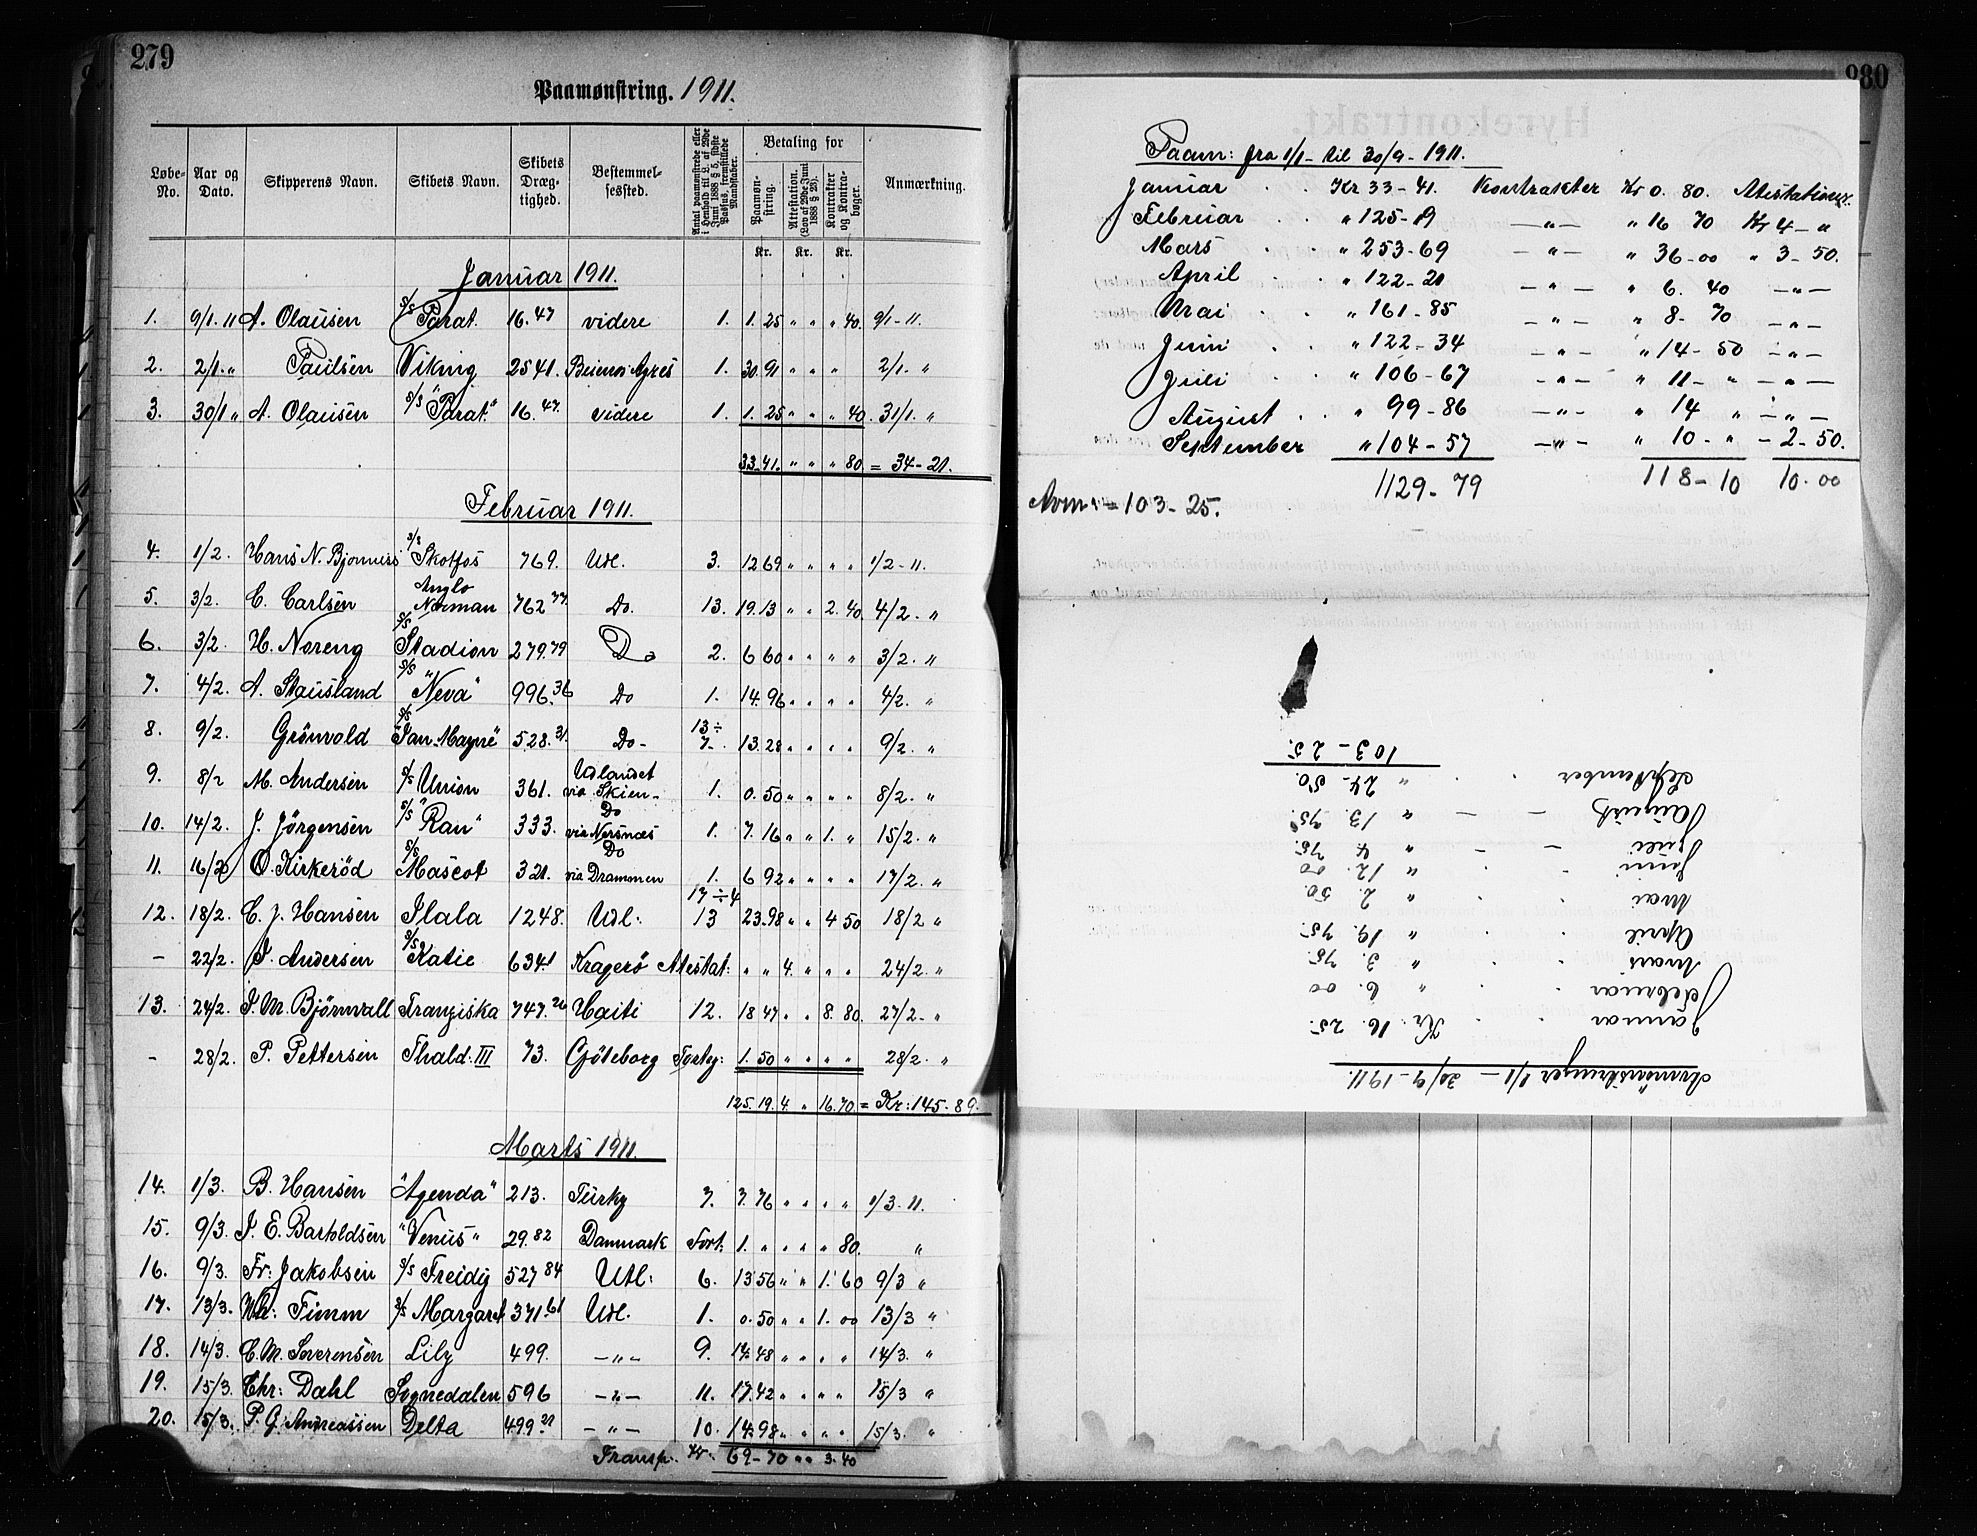 279
Paamønstring. 1911.
Løbe-No. Aar og Dato. Skipperens Navn. Skibets Navn. Skibets Dræg-tighed. Bestemmel-sessted. Antal paamønstrede eller i Henhold til L. af 29de Juni 1888 § 5, sidste Passus fremstillede Mandskaber. Betaling for Paamøn-string. Attestation. (Lov af 29de Juni 1888 § 26). Kontrakter og Kontra-bøger. Anmærkning.
Kr. Kr. Kr.
Januar 1911.
1. 9/1. 11 A. Olausen S/S Parat. 16.47 videre 1. 1. 25 " " " 40. 9/1-11.
2. 2/1. " Paulsen Viking 2541. Buenos Ayres 1. 30.91 " " " 2/1. "
3. 30/1 " A. Olausen S/S "Parat." 16.47. videre 1. 1. 25 " " " 40. 31/1. "
33.41. " " " 80 = 34-21.
Februar 1911.
4. 1/2. Hans N. Bjonness S/S Skotfos 769. Udl. 3. 12 69 " " " " 1/2-11.
5. 3/2. C. Carlsen Anglo Norman 762 77. Do. 13. 19.13 " " 2. 40. 4/2. "
6. 3/2. H. Noreng S/S Stadion 279.79 Do 2. 6 60 " " " " 3/2. "
7. 4/2. A. Stausland S/S "Neva" 996.36 Do 1. 14.96 " " " " 4/2. "
8. 9/2. Grönvold S/S "Jan Mayne" 528.31. Do- 13÷ 7- 13.28 " " " " 9/2. "
9. 8/2 M. Andersen S/S Union 361. Udlandet via Skien- 1. 0.50 " " " " 8/2. "
10. 14/2. J. Jörgensen S/S "Ran" 333. Do via Nersnæs 1. 7.16 " " 1. " 15/2. "
11. 16/2 O. Kirkeröd S/S Mascot 321. Do via Drammen 1. 6 92 " " " " 17/2. "
12. 18/2. C. J. Hansen Ilala 1248. Udl: 17÷4 13 23.98 " " 4 50 18/2 "
- 22/2. J. Andersen S/S Katie 634.1 Kragerö Atestat: " " 4. " " " 24/2. "
13. 24/2. J. M. Björnvall Franziska 747.26 Haiti 12. 18 47 " " 8. 80. 27/2. "
- 28/2. P. Pettersen Thald: III 73. Göteborg Forteg: 1. 50 " " " " 28/2. "
125.19. 4. " 16.70 = Kr: 145-89.
Marts 1911.
14. 1/3. B. Hansen "Agenda" 213. Türky 7. 7. 76 " " " " 1/3. 11.
15. 9/3. J. E. Bartoldsen "Venus" 29.82 Danmark Fort: 1. " " " " 80. "
16. 9/3. Fr: Jakobsen S/S Freidig 527 84 Utl: 6. 13 56 " " 1. 60 9/3 "
17. 13/3. Wh: Timm S/S Margaret 371.61 Udl. 1. 0.50 " " 1. 00 13/3 "
18. 14/3. C. M. Sverensen Lily 499. -"- 9. 14.48 " " " " 14/3. "
19. 15/3. Chr: Dahl Sognedalen 596 -"- 11. 17.42 " " " " 15/3 "
20. 15/3. P. G. Andreassen Delta 499.21 -"- 10. 14.98 " " " " 15/3. "
Transp. Kr. 69-70 " " 3.40
280
Hyrekontrakt.
Paam: fra 1/1- til 30/9-1911.
Januar . . Kr 33-41. Kontrakter Kr 0. 80. Atestationer.
Februar . . " 125-19 -"- " 16 70 Kr 4-"
Mars . . " 253-69 -"- " 36-00 " 3-50.
April . . " 122-20 -"- " 6. 40 -"-
Mai . . " 161-85 -"- " 8- 70 -"-
Juni . . " 122-34 -"- " 14-50 -"-
Juli . . " 106-67 -"- " 11- " -"-
August . . " 99-86 -"- " 14 " -"-
September " 104-57 -"- " 10-" -2-50.
1129-79 118-10 10.00
Avm: = 103-25.
Avmönstringer 1/1-30/9-1911.
Januar . . Kr. 16. 25.
Februar . . " 6. 00
Mars . . " 3. 75
April . . " 19. 75
Mai . . " 2. 50
Juni . . " 12. 00
Juli - - " 4. 75
August - - " 13. 75
September . . " 24-50.
103-25.